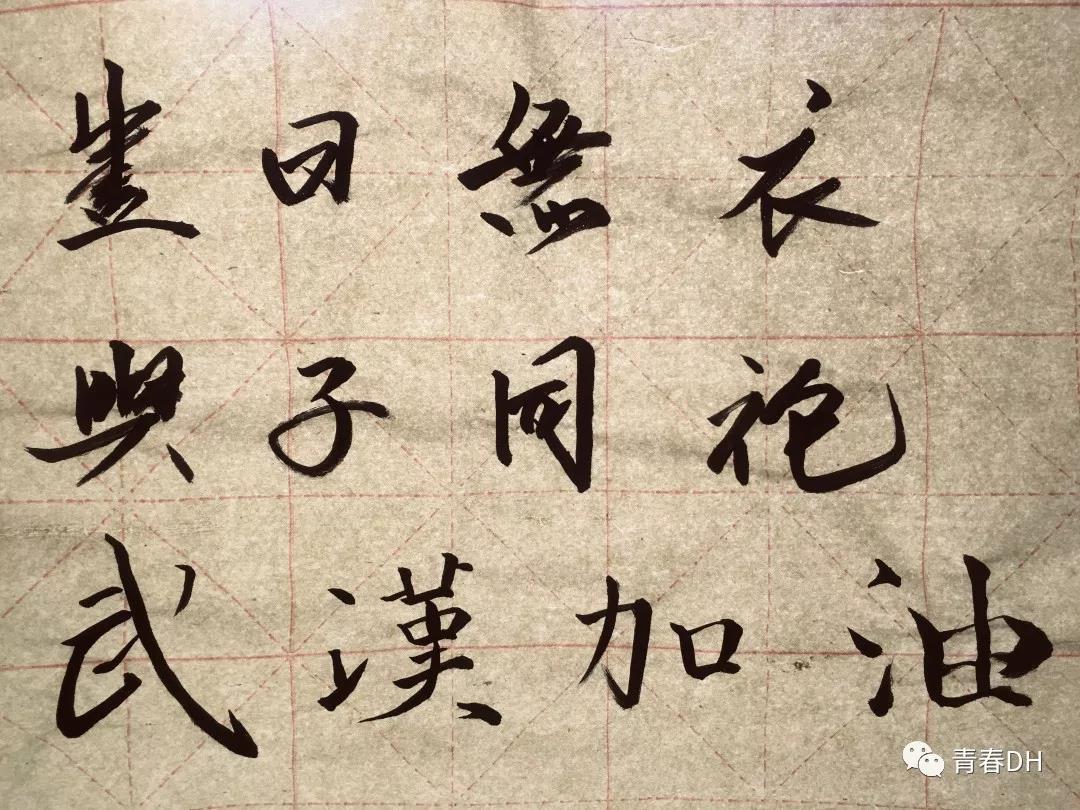 豈曰無衣
與子同袍
武漢加油
青春DH